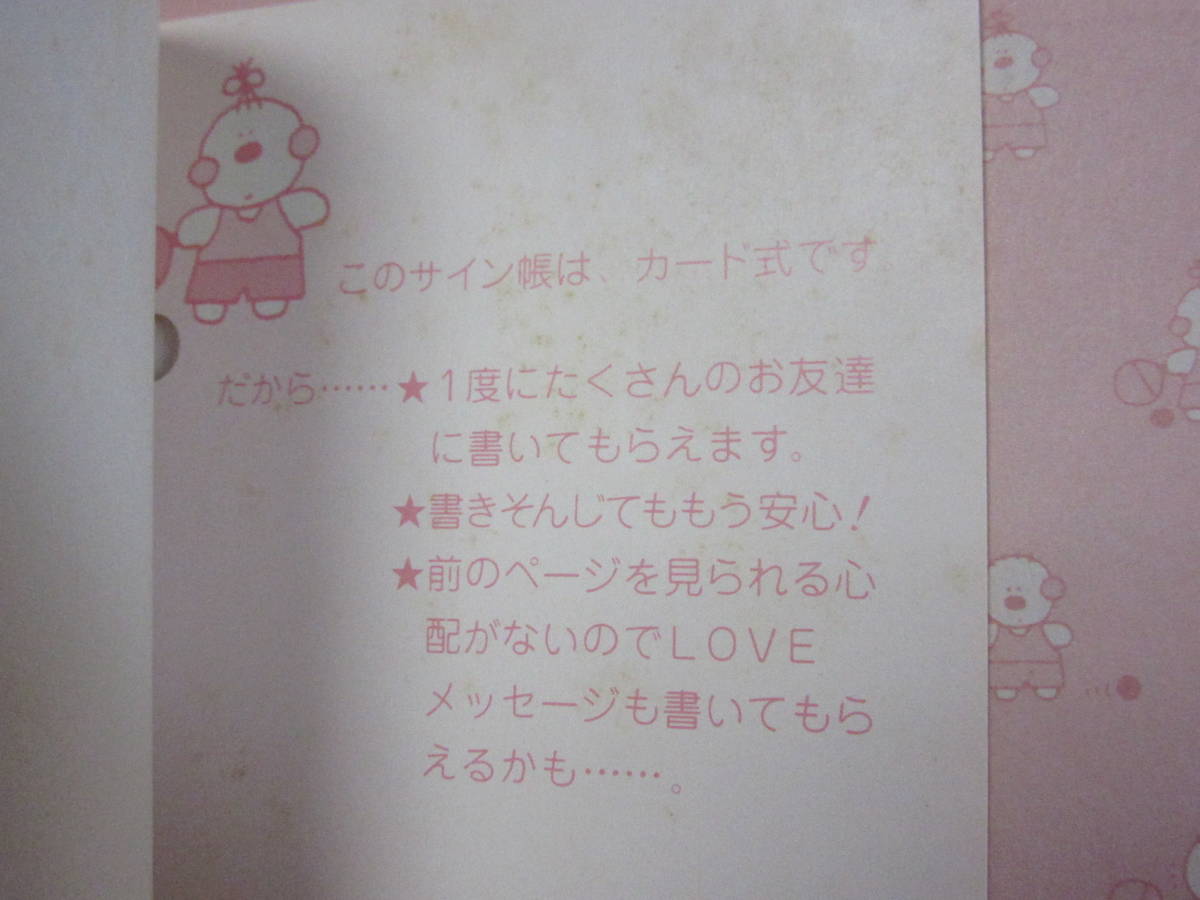 このサイン帳は、カード式です
だから……★1度にたくさんのお友達
に書いてもらえます。
★書きそんじてももう安心!
★前のページを見られる心
配がないのでLOVE
メッセージも書いてもら
えるかも……。